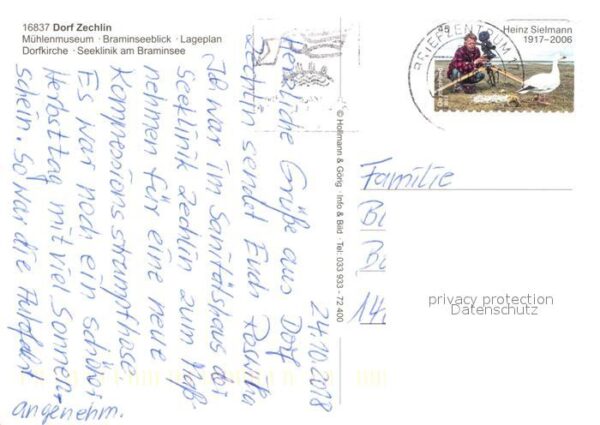 16837 Dorf Zechlin
Mühlenmuseum · Braminseeblick · Lageplan
Dorfkirche · Seeklinik am Braminsee
BRIEFZENTRUM 1
Heinz Sielmann
1917–2006
24.10.2018
Herzliche Grüße aus Dorf
Zechlin sendet Euch Roswitha
Ich war im Sanitätshaus der
Seeklinik Zechlin zum Maß-
nehmen für eine neue
Kompressionsstrumpfhose
Es war noch ein schöner
Herbsttag mit viel Sonnen-
schein. So war die Autofahrt
angenehm.
© Hollmann & Görig · Info & Bild · Tel: 033 933 - 72 400
Familie
B
B
14
privacy protection
Datenschutz